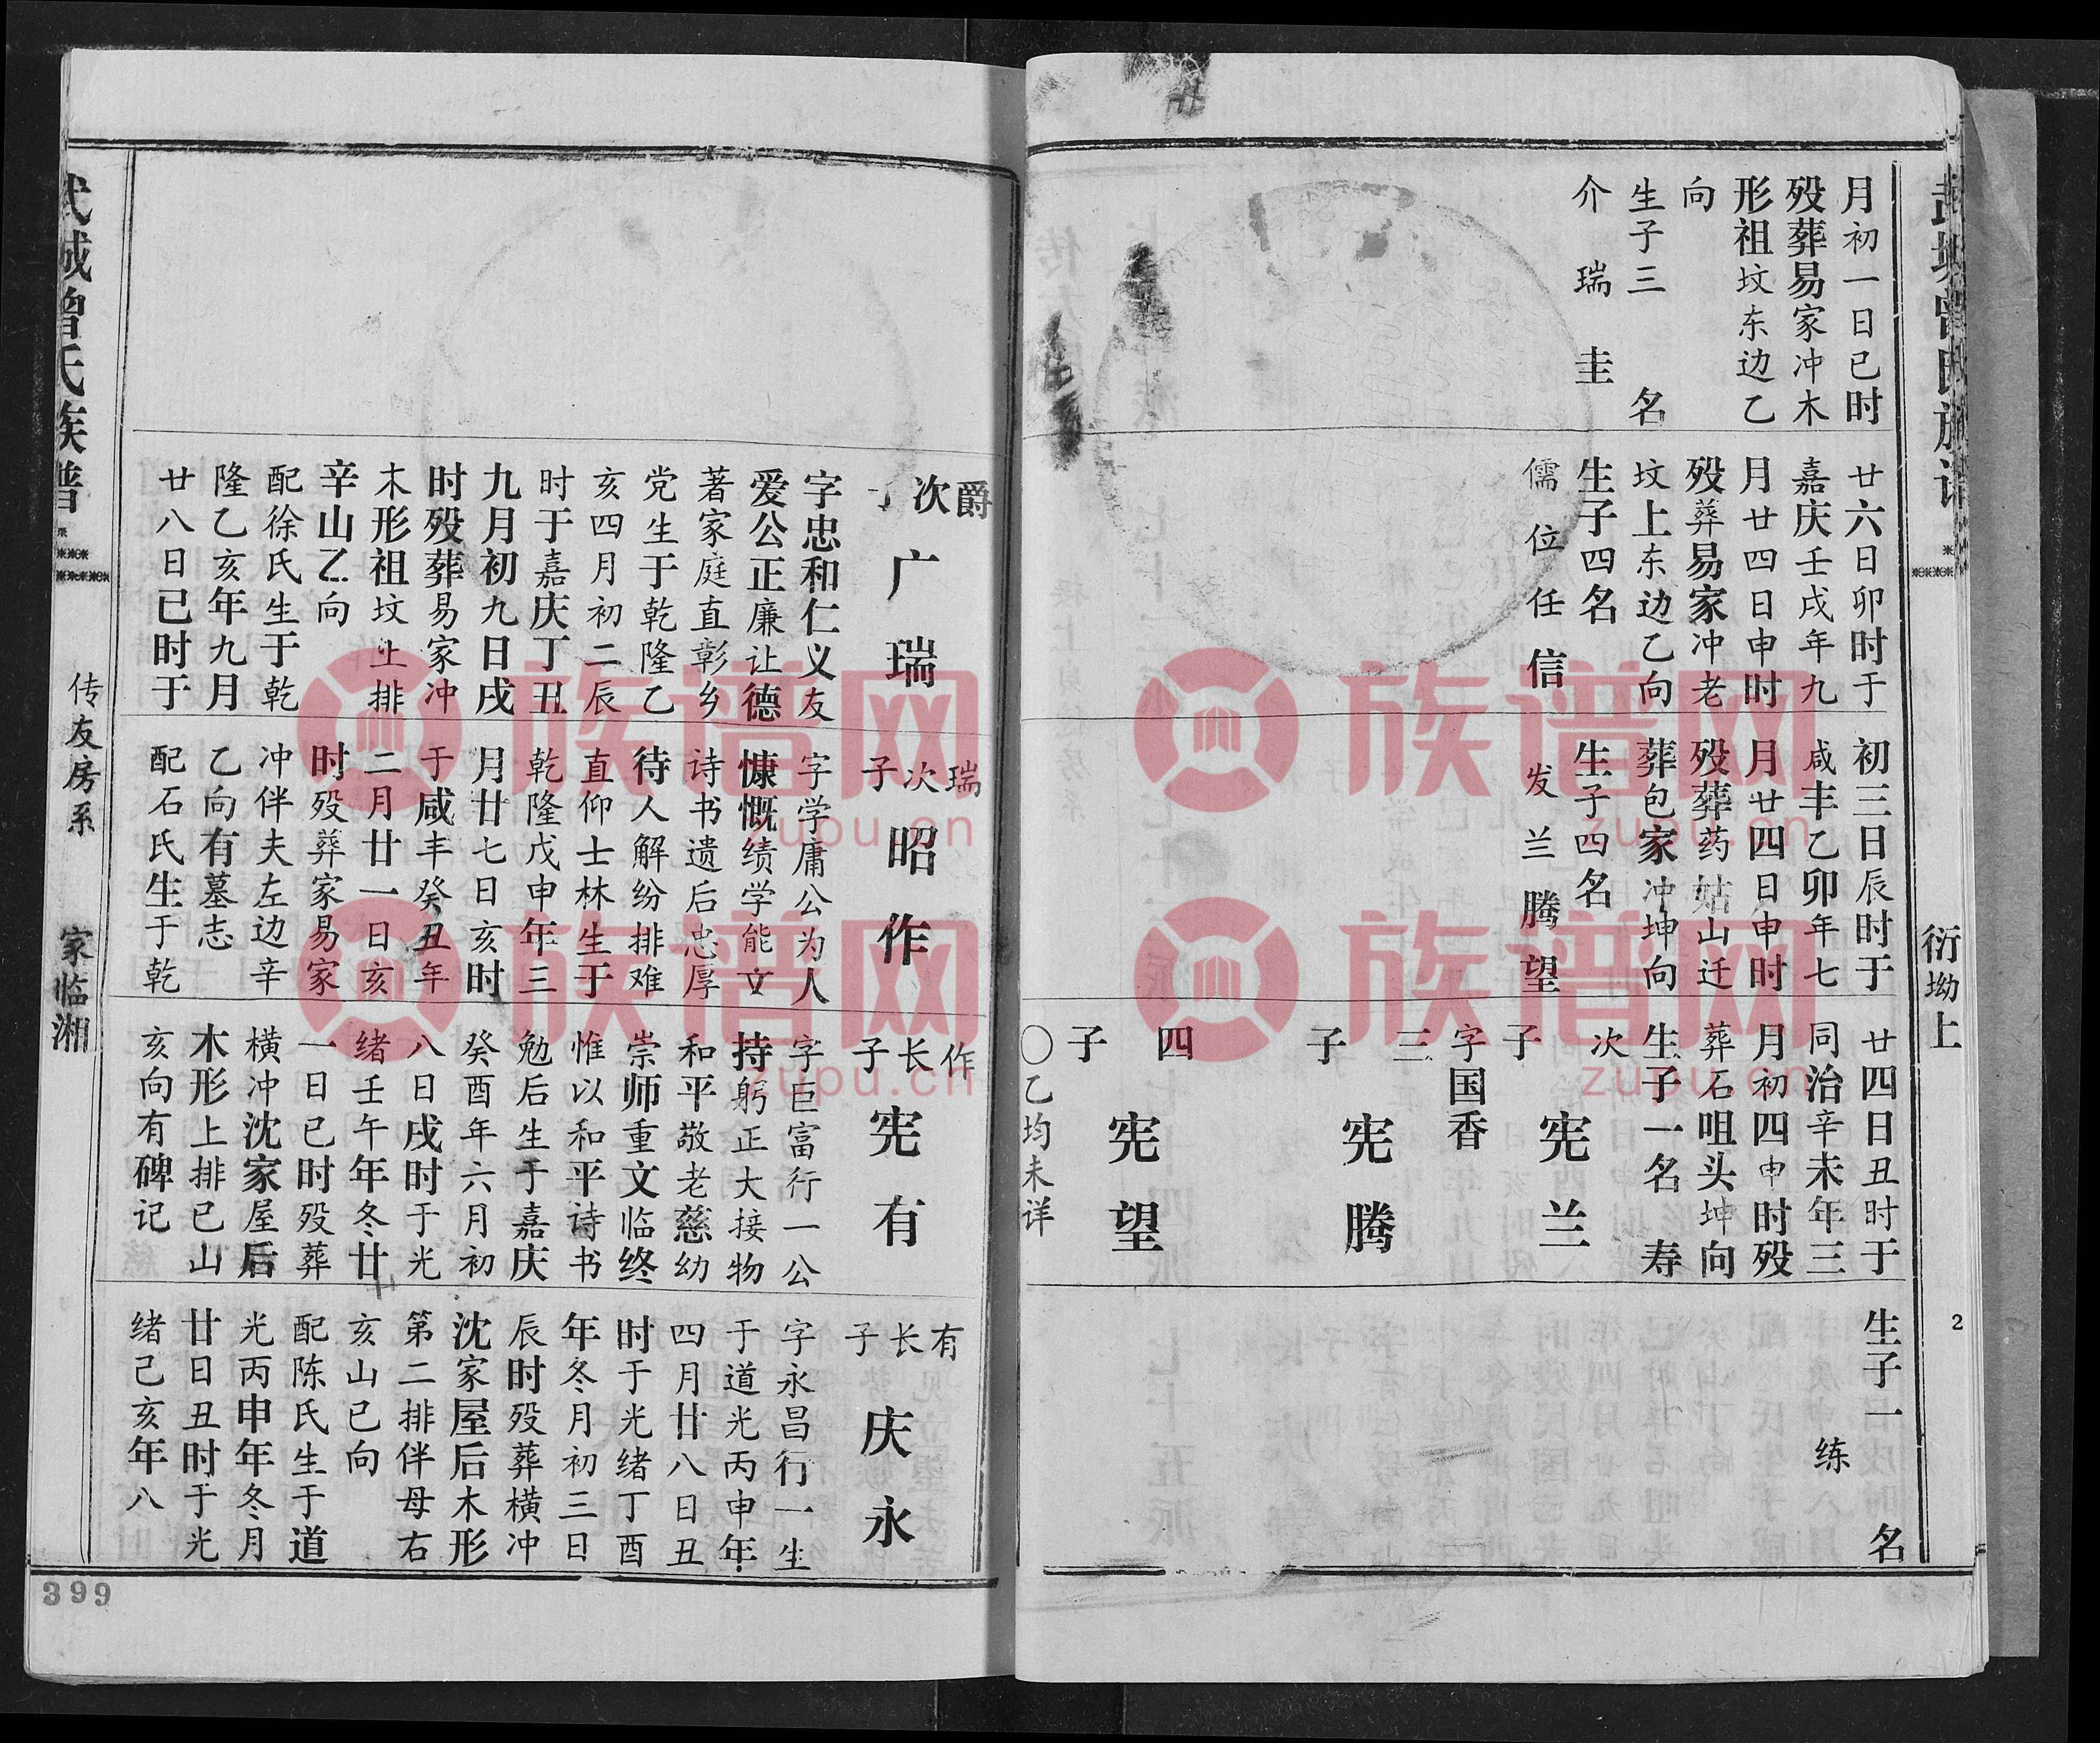 武城曾氏族谱
衍坳上
2
月初一日巳时
殁葬易家冲木
形祖坟东边乙
向
生子三名
介瑞圭
廿六日卯时于
嘉庆壬戌年九
月廿四日申时
殁葬易家冲老
坟上东边乙向
生子四名
儒位任信
初三日辰时于
咸丰乙卯年七
月廿四日申时
殁葬药姑山迁
葬包家冲坤向
生子四名
发兰腾望
廿四日丑时于
同治辛未年三
月初四申时殁
葬石咀头坤向
生子一名寿
次子
宪兰
字国香
三子
宪腾
四子
宪望
〇乙均未详
生子一名
练
爵次子
广瑞
字忠和仁义友
爱公正廉让德
著家庭直彰乡
党生于乾隆乙
亥四月初二辰
时于嘉庆丁丑
九月初九日戌
时殁葬易家冲
木形祖坟上排
辛山乙向
配徐氏生于乾
隆乙亥年九月
廿八日巳时于
瑞次子
昭作
字学庸公为人
慷慨绩学能文
诗书遗后忠厚
待人解纷排难
直仰士林生于
乾隆戊申年三
月廿七日亥时
于咸丰癸丑年
二月廿一日亥
时殁葬家易家
冲伴夫左边辛
乙向有墓志
配石氏生于乾
作长子
宪有
字巨富行一公
持躬正大接物
和平敬老慈幼
崇师重文临终
惟以和平诗书
勉后生于嘉庆
癸酉年六月初
八日戌时于光
绪壬午年冬廿
一日巳时殁葬
横冲沈家屋后
木形上排巳山
亥向有碑记
有长子
庆永
字永昌行一生
于道光丙申年
四月廿八日丑
时于光绪丁酉
年冬月初三日
辰时殁葬横冲
沈家屋后木形
第二排伴母右
亥山巳向
配陈氏生于道
光丙申年冬月
廿日丑时于光
绪己亥年八
武城曾氏族谱
传友房系
家临湘
399
族谱网
zupu.cn
族谱网
zupu.cn
族谱网
zupu.cn
族谱网
zupu.cn